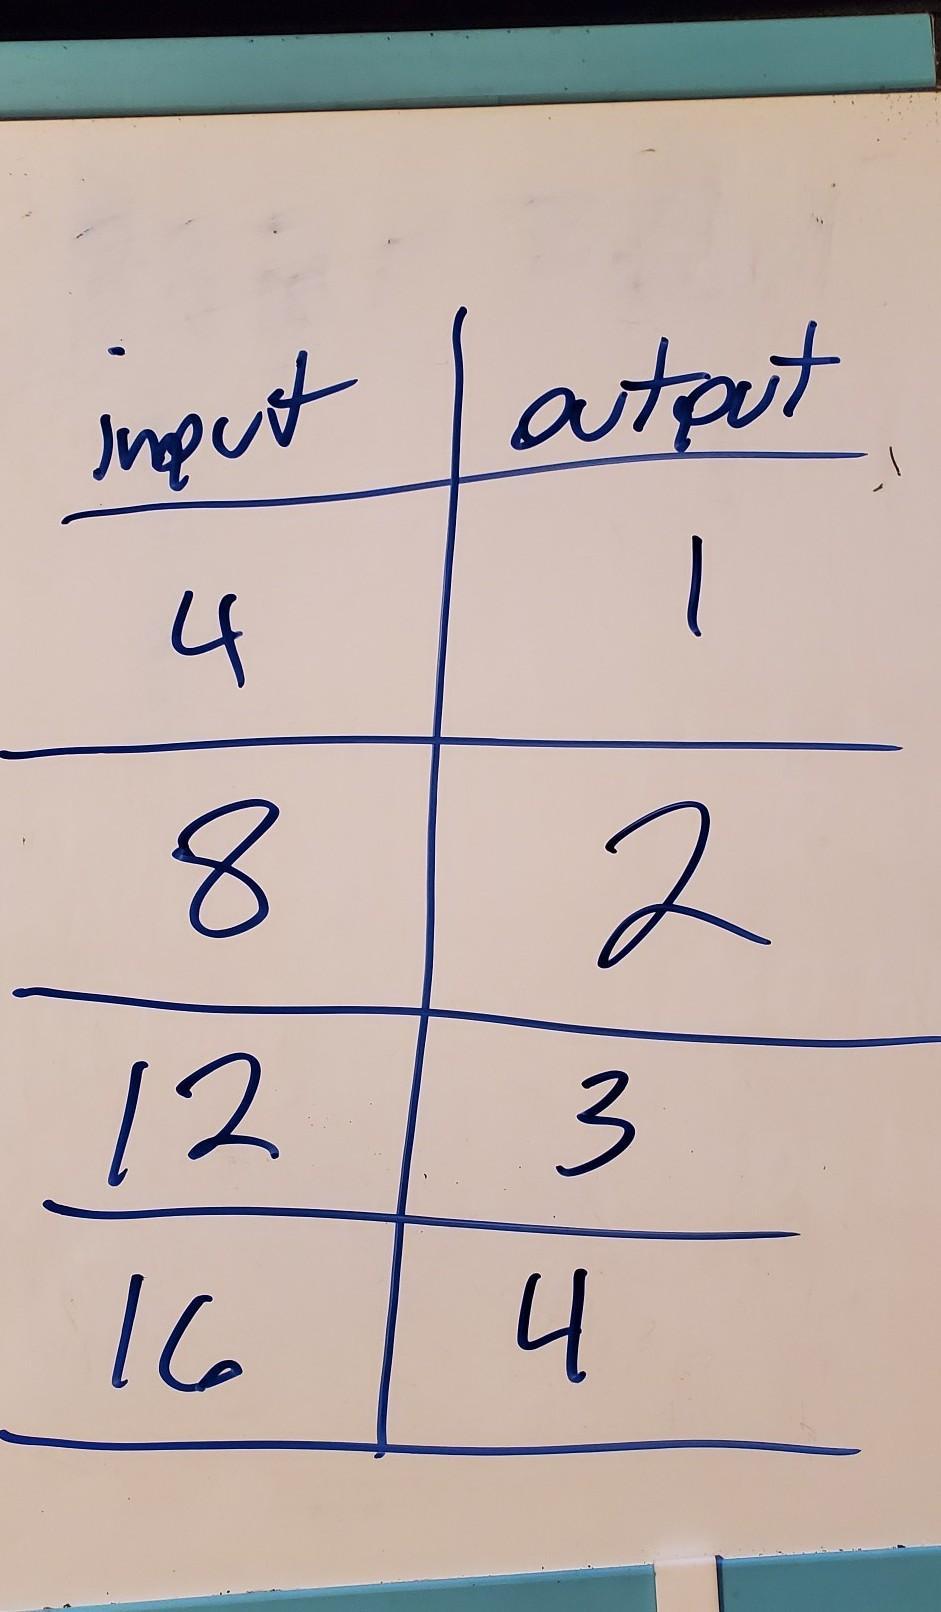 input output
4 1
8 2
12 3
16 4